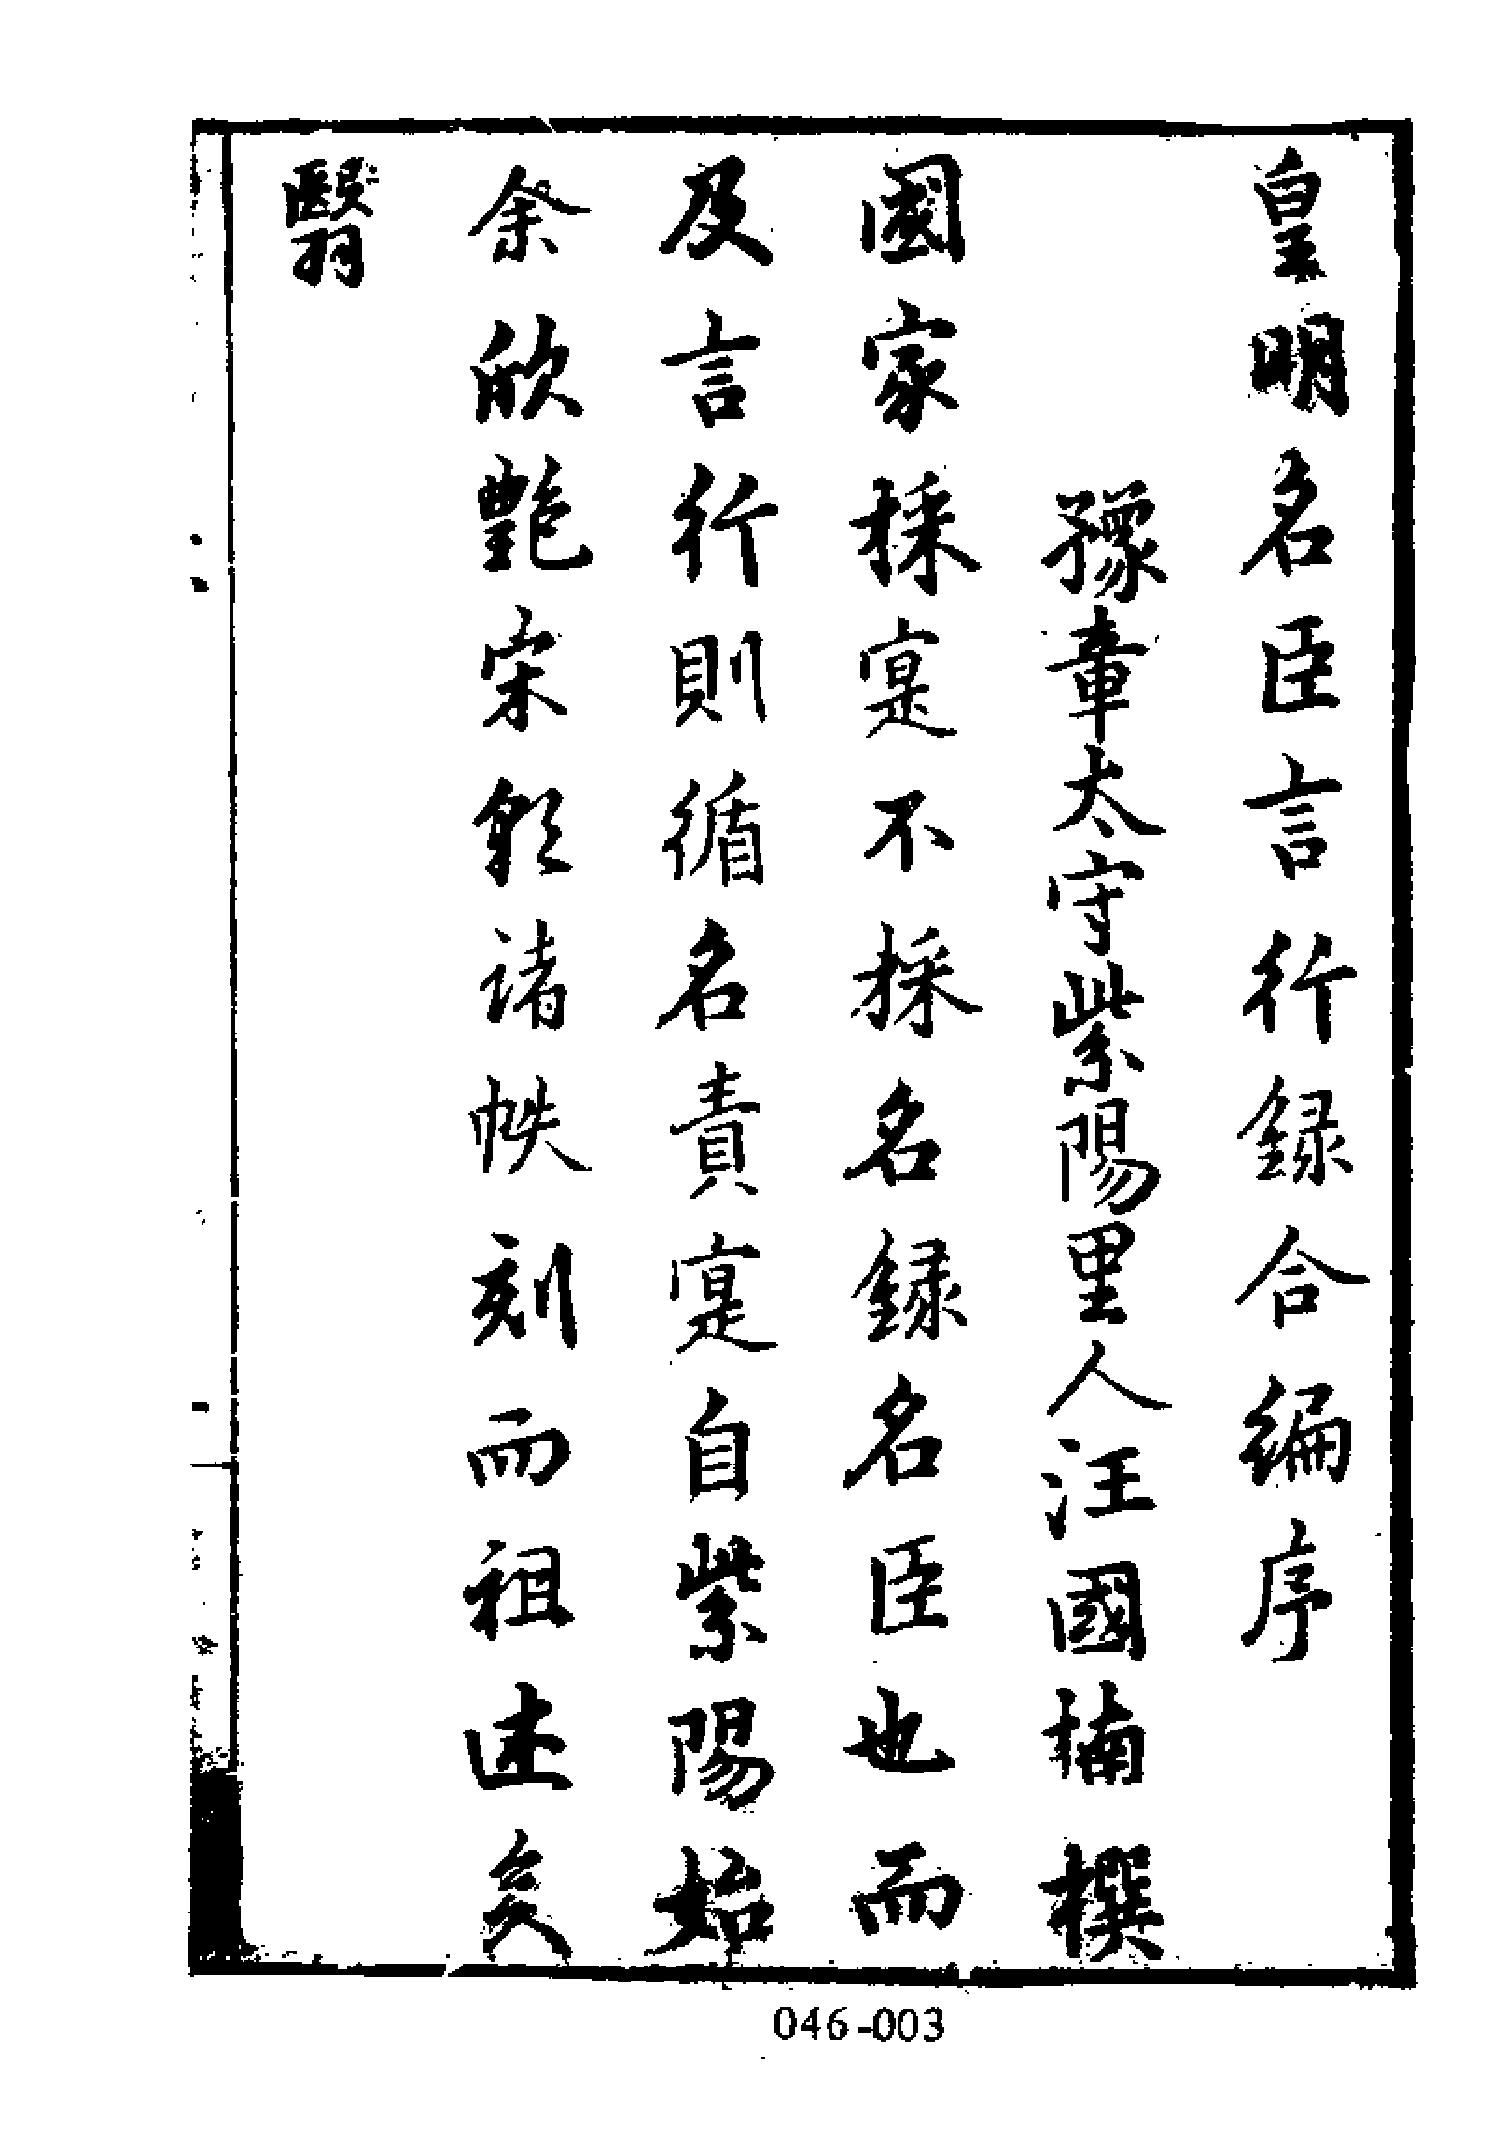 皇明名臣言行録合編序
豫章太守紫陽里人汪國楠撰
國家採寔不採名録名臣也而
及言行則循名責寔自紫陽始
余欣艷宋朝諸帙刻而祖述矣
翳
046-003